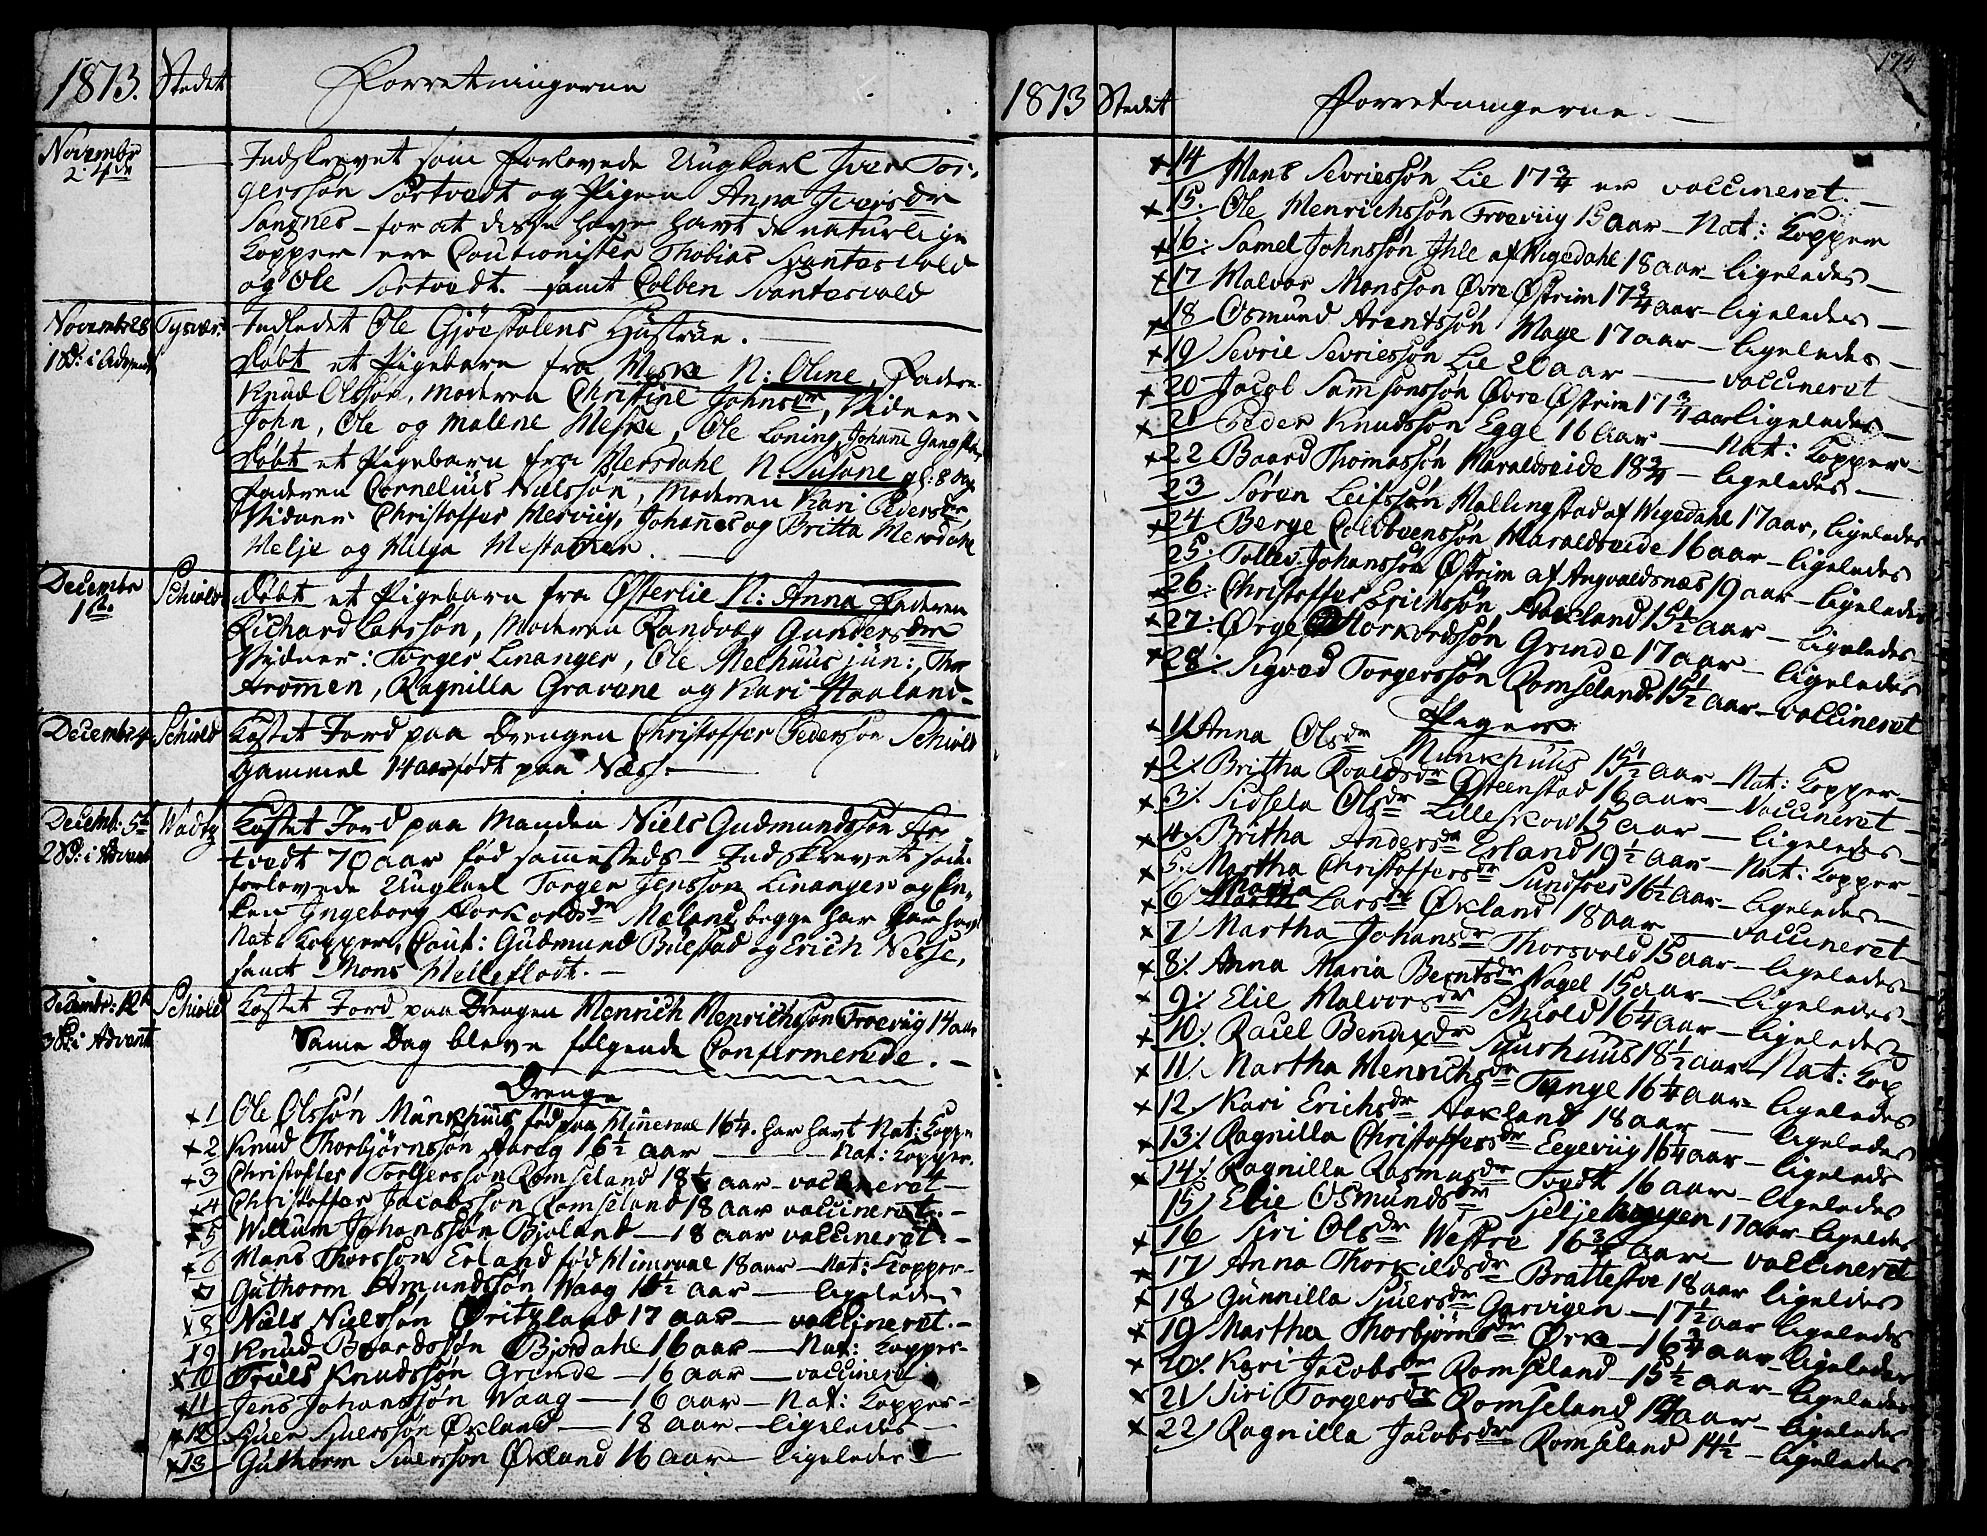 1813. Stedet Forretningerne
Novembr 2:4de
Indskrevet som forlovede Ungkarl Iver Tor-
gerssøn Sørtvedt og Pigen Anna Iversdr
Sangnes – for at disse have havt de naturlige
Kopper ere Cautionister Thobias Svantesvold
og Ole Sørtvedt. – samt Colben Svantesvold
Novembr 28 Tysvær.
1 S: i Advent
Indledet Ole Gjøestølens Hustrue.
Døbt et Pigebarn fra Meske N: Oline, Fader
Knud Olssøn, Moderen Christine Johnsdr, Vidner
John, Ole og Malene Meske, Ole Loning, Johanne
Døbt et Pigebarn fra Hersdahl N: Susane gl: 8
Faderen Cornelius Nielssøn, Moderen Kari Pedersdr,
Vidner Christoffer Hervig, Johannes og Britta Hersdahl
Helje og Helga
Decembr 1te Schiold
Døbt et Pigebarn fra Østerlie N: Anna Faderen
Richard Larssøn, Moderen Randveg Gundersdr
Vidner: Torger Linanger, Ole Melhuus jun:,
Arommen, Ragnilla Gravene og Kari Haaland –
Decembr 4 Schiold
Kastet Jord paa Drengen Christoffer Pederssøn Schiold
Gammel 14 aar født paa Næss. –
Decemb: 5te Wads
2 S: i Advent
Kastet Jord paa Manden Niels Gudmundssøn
tvedt 70 aar fød sammesteds – Indskrevet som
forlovede Ungkarl Torger Jenssøn Linanger og En-
ken Ingeborg Torkoldsdr Mæland, begge har har havt
Nat: Kopper, Caut: Gudmund Buestad og Erich Nesse,
samt Mons Hetteflodt. –
Decembr: 12te Schiold
3 S: i Advent
Kastet Jord paa Drengen Henrich Henrichssøn Froeviig 14 aar
Same Dag bleve følgende Confirmerede. –
Drenge
1 Ole Olssøn Munkhuus fød paa Mineraae 16¼. har havt Nat: Koppe
2 Knud Thorbjørnssøn Aareg 16½ aar – Nat: Kopper.
3 Christoffer Torgerssøn Romseland 18¼ aar – vaccineret
4 Christoffer Jacobssøn Romseland 18 aar vaccineret. –
5 Willum Johanssøn Bjoland – 18 aar vaccineret. –
6 Hans Thorssøn Erland fød 18 aar – Nat: Kopper –
7 Guthorm Amundssøn Waag aar – ligeledes
8 Niels Nielssøn Øritzland 17 aar – vaccineret. –
9 Knud Baardssøn Bjordahl 16 aar – Nat: Kopper –
10 Truels Knudssøn Grinde – 16 aar – vaccineri
11 Jens Johanssøn Waag – 16 aar – Nat: Kopper –
12 Sjuerssøn Øxland – 18 aar – ligeledes –
13 Guthorm Sjuerssøn Øxland 16 aar – ligeledes –
174
1813 Stedet Forretningerne. –
14 Hans Sevriessøn Lie 17¾ er vaccineret. –
15. Ole Henrichssøn Froeviig 15 aar – Nat: Kopper
16: Samel Johnssøn Ihle af Wigedahl 18 aar – ligeledes –
17 Halvor Monssøn Øvre Østrim 17¾ aar – ligeledes –
18 Osmund Arentssøn Hage 17 aar – ligeledes –
19 Sevrie Sevriessøn Lie 20 aar – vaccineret
20 Jacob Samsonssøn Øvre Østrim 17¾ aar ligeledes –
21 Peder Knudssøn Egge 16 aar – Nat: Kopper –
22 Baard Thomassøn Haraldseide 18¾ – ligeledes –
23 Søren Leifssøn Hallingstad af Wigedahl 17 aar, ligeledes
24 Berge Coldbenssøn Haraldseide 16 aar – ligeledes
25: Tollev Johanssøn Østrim af Augvaldsnæs 19 aar – ligeledes
26: Christoffer Erichssøn Aaxland 15½ aar – ligeledes –
27: Ørge Storkordssøn Grinde 17 aar – ligeledes
28: Sigvad Torgerssøn Romseland. 15½ aar – vaccineret
Piger
1. Anna Olsdr Munkhuus 15½ aar – Nat: Kopper –
2. Britha Roaldsdr Østeenstad 16 aar – Vaccineret –
3. Sidsela Olsdr Lilleskow 15 aar – ligeledes –
4. Britha Andersdr Erland 19½ aar – Nat: Kopper –
5. Martha Christoffersdr Sundfoer 16½ aar – ligeledes –
6. Maria Larsdr Øxland 18 aar – vaccineret
7. Martha Johansdr Thorsvold 15 aar – ligeledes –
8. Anna Maria Berntsdr Nagel 15 aar – ligeledes –
9. Elie Halvorsdr Schiold 16¼ aar – ligeledes –
10. Rauel Bendixdr Suushuus 18½ aar – Nat: Kop
11. Martha Henrichsdr Tange 16¼ aar – ligeledes
12. Kari Erichsdr Aaxland 18 aar – ligeledes
13. Ragnilla Christoffersdr Eegeviig 16¼ aar – ligeledes
14. Ragnilla Rasmusdr Tvedt 16 aar – ligeledes
15 Elie Osmundsdr 17 aar – ligeledes
16 Siri Olsdr Westre 16¾ aar – vaccineret
17 Anna Thorkildsdr Brattestøe 18 aar ligeldes
18 Gunnilla Sjuersdr Garvigen – 17½ aar ligeledes
19 Martha Thorbjørnsdr Ørke – 16¾ aar – ligeledes
20. Kari Jacobsdr Romseland – 15½ aar – ligeledes
21 Siri Torgersdr Romseland 14 aar – ligeledes
22 Ragnilla Jacobsdr Romseland 14½ – ligeledes